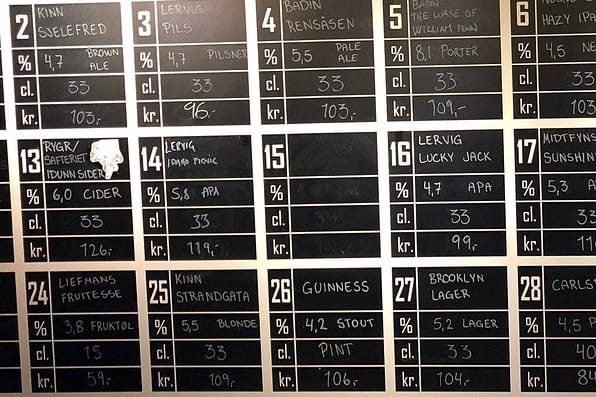 2 KINN SJELEFRED
% 4,7 BROWN ALE
cl. 33
kr. 103,-
3 LERVIG PILS
% 4,7 PILSNER
cl. 33
kr. 96,-
4 BADIN RENSÅSEN
% 5,5 PALE ALE
cl. 33
kr. 103,-
5 BADIN THE CURSE OF WILLIAM PENN
% 8,1 PORTER
cl. 33
kr. 109,-
6 HAZY IPA
% 4,5 NE
cl. 33
kr. 103
13 RYGR/ SAFTERIET IDUNN SIDER
% 6,0 CIDER
cl. 33
kr. 126,-
14 LERVIG IDAHO PICNIC
% 5,8 APA
cl. 33
kr. 119,-
15
%
cl.
kr.
16 LERVIG LUCKY JACK
% 4,7 APA
cl. 33
kr. 99,-
17 MIDTFYNS SUNSHIN
% 5,3 A
cl. 33
kr. 11
24 LIEFMANS FRUITESSE
% 3,8 FRUKTØL
cl. 15
kr. 59,-
25 KINN STRANDGATA
% 5,5 BLONDE
cl. 33
kr. 109,-
26 GUINNESS
% 4,2 STOUT
cl. PINT
kr. 106,-
27 BROOKLYN LAGER
% 5,2 LAGER
cl. 33
kr. 104,-
28 CARLS
% 4,5 P
cl. 40
kr. 84